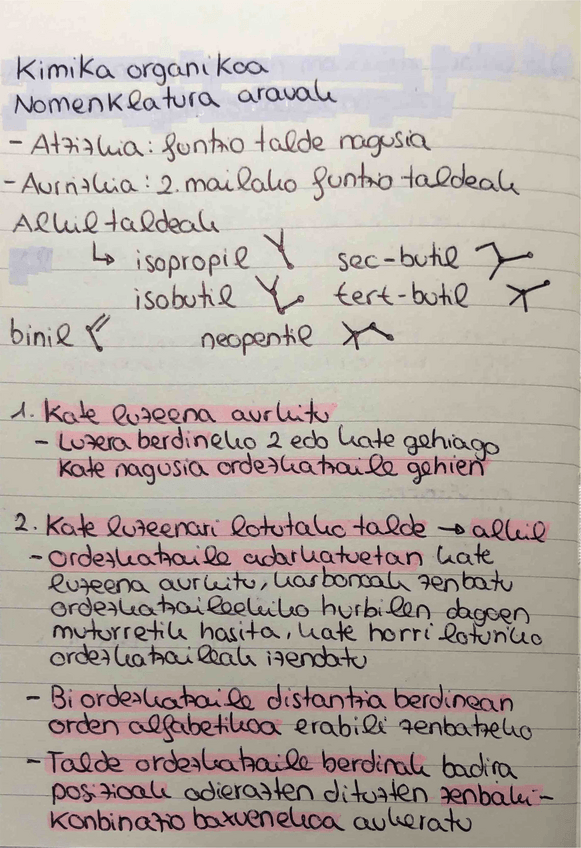 Kimika organikoa
Nomenklatura arauak
- Atzizkia: funtzio talde nagusia
- Aurrizkia: 2. mailako funtzio taldeak
Alkil taldeak
↳ isopropil sec-butil
isobutil tert-butil
binil neopentil
1. Kate luzeena aurkitu
- Luzera berdineko 2 edo kate gehiago
kate nagusia ordezkatzaile gehien
2. Kate luzeenari lotutako talde → alkil
- Ordezkatzaile adarkatuetan kate
luzeena aurkitu, karbonoak zenbatu
ordezkatzaileekiko hurbilen dagoen
muturretik hasita, kate horri loturiko
ordezkatzaileak izendatu
- Bi ordezkatzaile distantzia berdinean
orden alfabetikoa erabili zenbatzeko
- Talde ordezkatzaile berdinak badira
posizioak adierazten dituzten zenbaki-
konbinazio baxuenekoa aukeratu